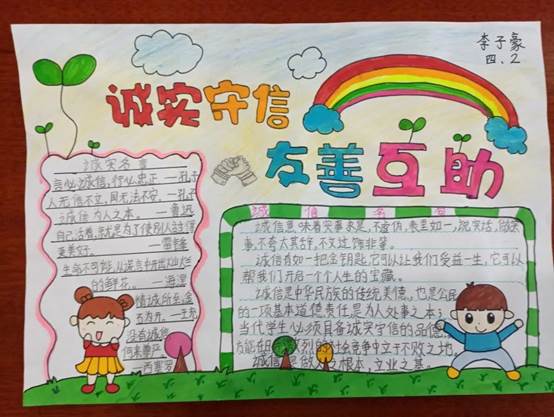 李子豪
四.2
诚实守信
友善互助
诚实名言
言必诚信,行必忠正 —孔子
人无信不立,国无法不安。—孔子
诚信为人之本。 —鲁迅
自己活着,就是为了使别人过得
更美好。 —雷锋
生命不可能从谎言中开出灿烂
的鲜花。 —海涅
精诚所至,金
石为开。—王充
没有诚信,
何来尊严。
—西塞罗
诚信名言
诚信意味着实事求是,不虚伪,表里如一,说实话,做实
事,不夸大其辞,不文过饰非等。
诚信有如一把金钥匙,它可以让我们受益一生,它可以
帮我们开启一个个人生的宝藏。
诚信是中华民族的传统美德,也是公民
的一项基本道德责任,是为人处事之本;
当代学生必须具备诚实守信的品德,
方能在日 烈的社会竞争中立于不败之地。
诚信是做人之根本,立业之基。